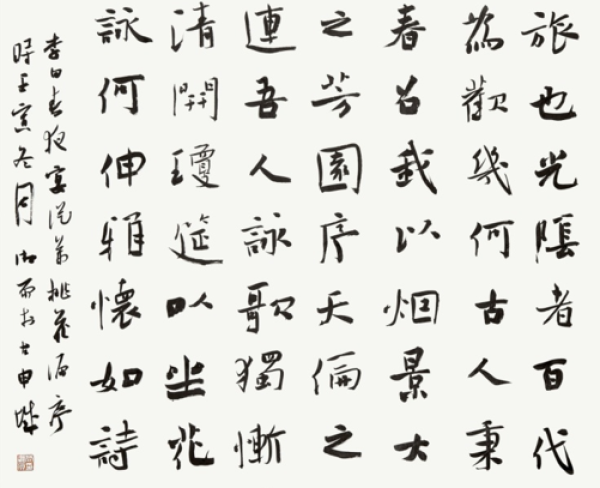 旅也光陰者百代
為歡幾何古人秉
春召我以烟景大
之芳園序天倫之
連吾人詠歌獨慚
清開瓊筵以坐花
詠何伸雅懷如詩
李白春夜宴從弟桃花源序
時壬寅冬月